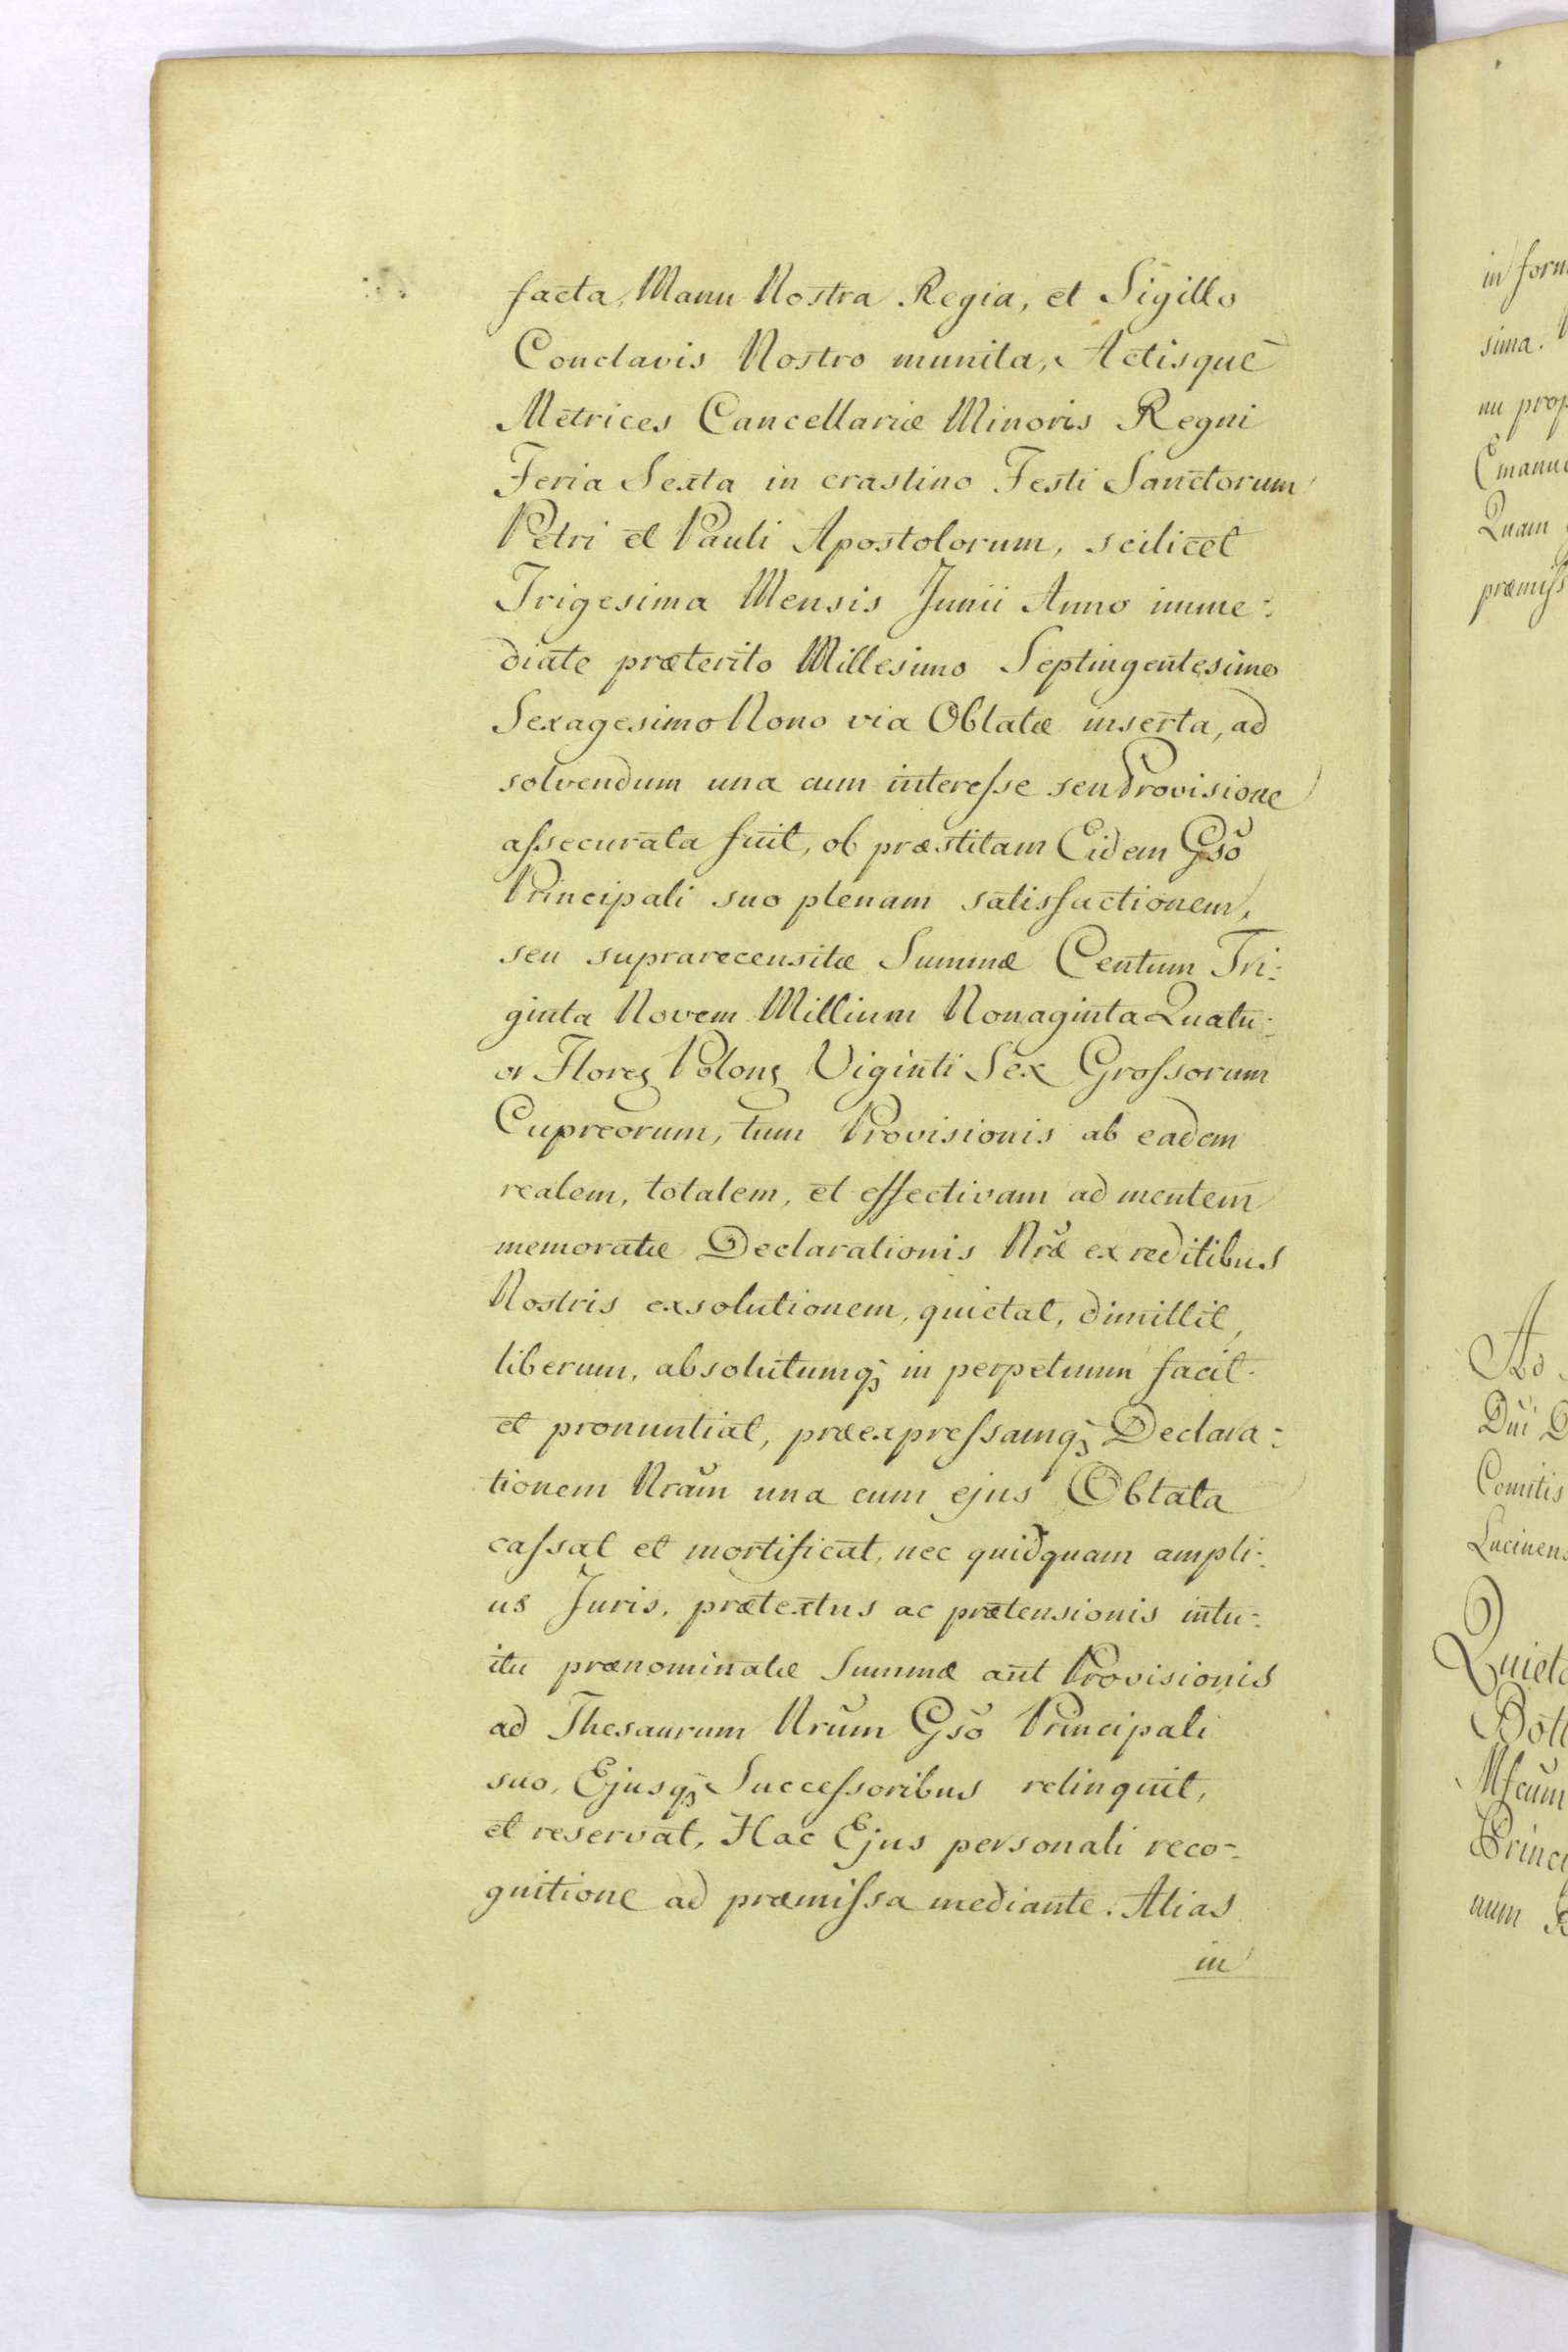 facta, Manu Nostra Regia, et Sigillo
Conclavis Nostro munita, Actisque
Metrices Cancellariæ Minoris Regni
Feria Sexta in crastino Festi Sanctorum
Petri et Pauli Apostolorum, scilicet
Trigesima Mensis Junii Anno imme-
diate præterito Millesimo Septingentesimo
Sexagesimo Nono via Oblatæ inserta, ad
solvendum una cum interesse seu Provisione
assecurata fuit, ob præstitam Eidem Gsō
Principali suo plenam satisfactionem,
seu suprarecensitæ Summæ Centum Tri-
ginta Novem Millium Nonaginta Quatu-
or Floren Polon Viginti Sex Grossorum
Cupreorum, tum Provisionis ab eadem
realem, totalem, et effectivam ad mentem
memoratæ Declarationis Nræ ex reditibus
Nostris exsolutionem, quietat, dimittit,
liberum, absolutumq in perpetuum facit
et pronuntiat, præexpressamq Declara-
tionem Nram una cum ejus Oblata
cassat et mortificat, nec quidquam ampli-
us Juris, prætextus ac prætensionis intu-
itu prænominatæ Summæ aut Provisionis
ad Thesaurum Nrum Gsō Principali
suo, Ejusq Successoribus relinquit,
et reservat, Hac Ejus personali reco-
gnitione ad præmissa mediante. Alias
in
in form
sima.
nu prop
Emanue
Quam
præmiss
Ad
Dui D
Comitis
Lucinens
Quieta
Bott
Mfcum
Princi
num